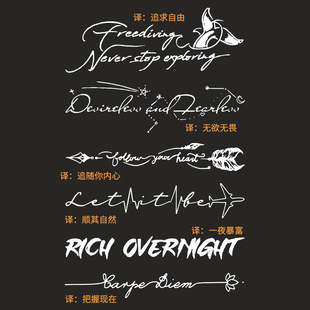 译：追求自由
Freediving
Never stop exploring
Desireless and Fearless
译：无欲无畏
follow your heart
译：追随你内心
Let it be
译：顺其自然
译：一夜暴富
RICH OVERNIGHT
Carpe Diem
译：把握现在